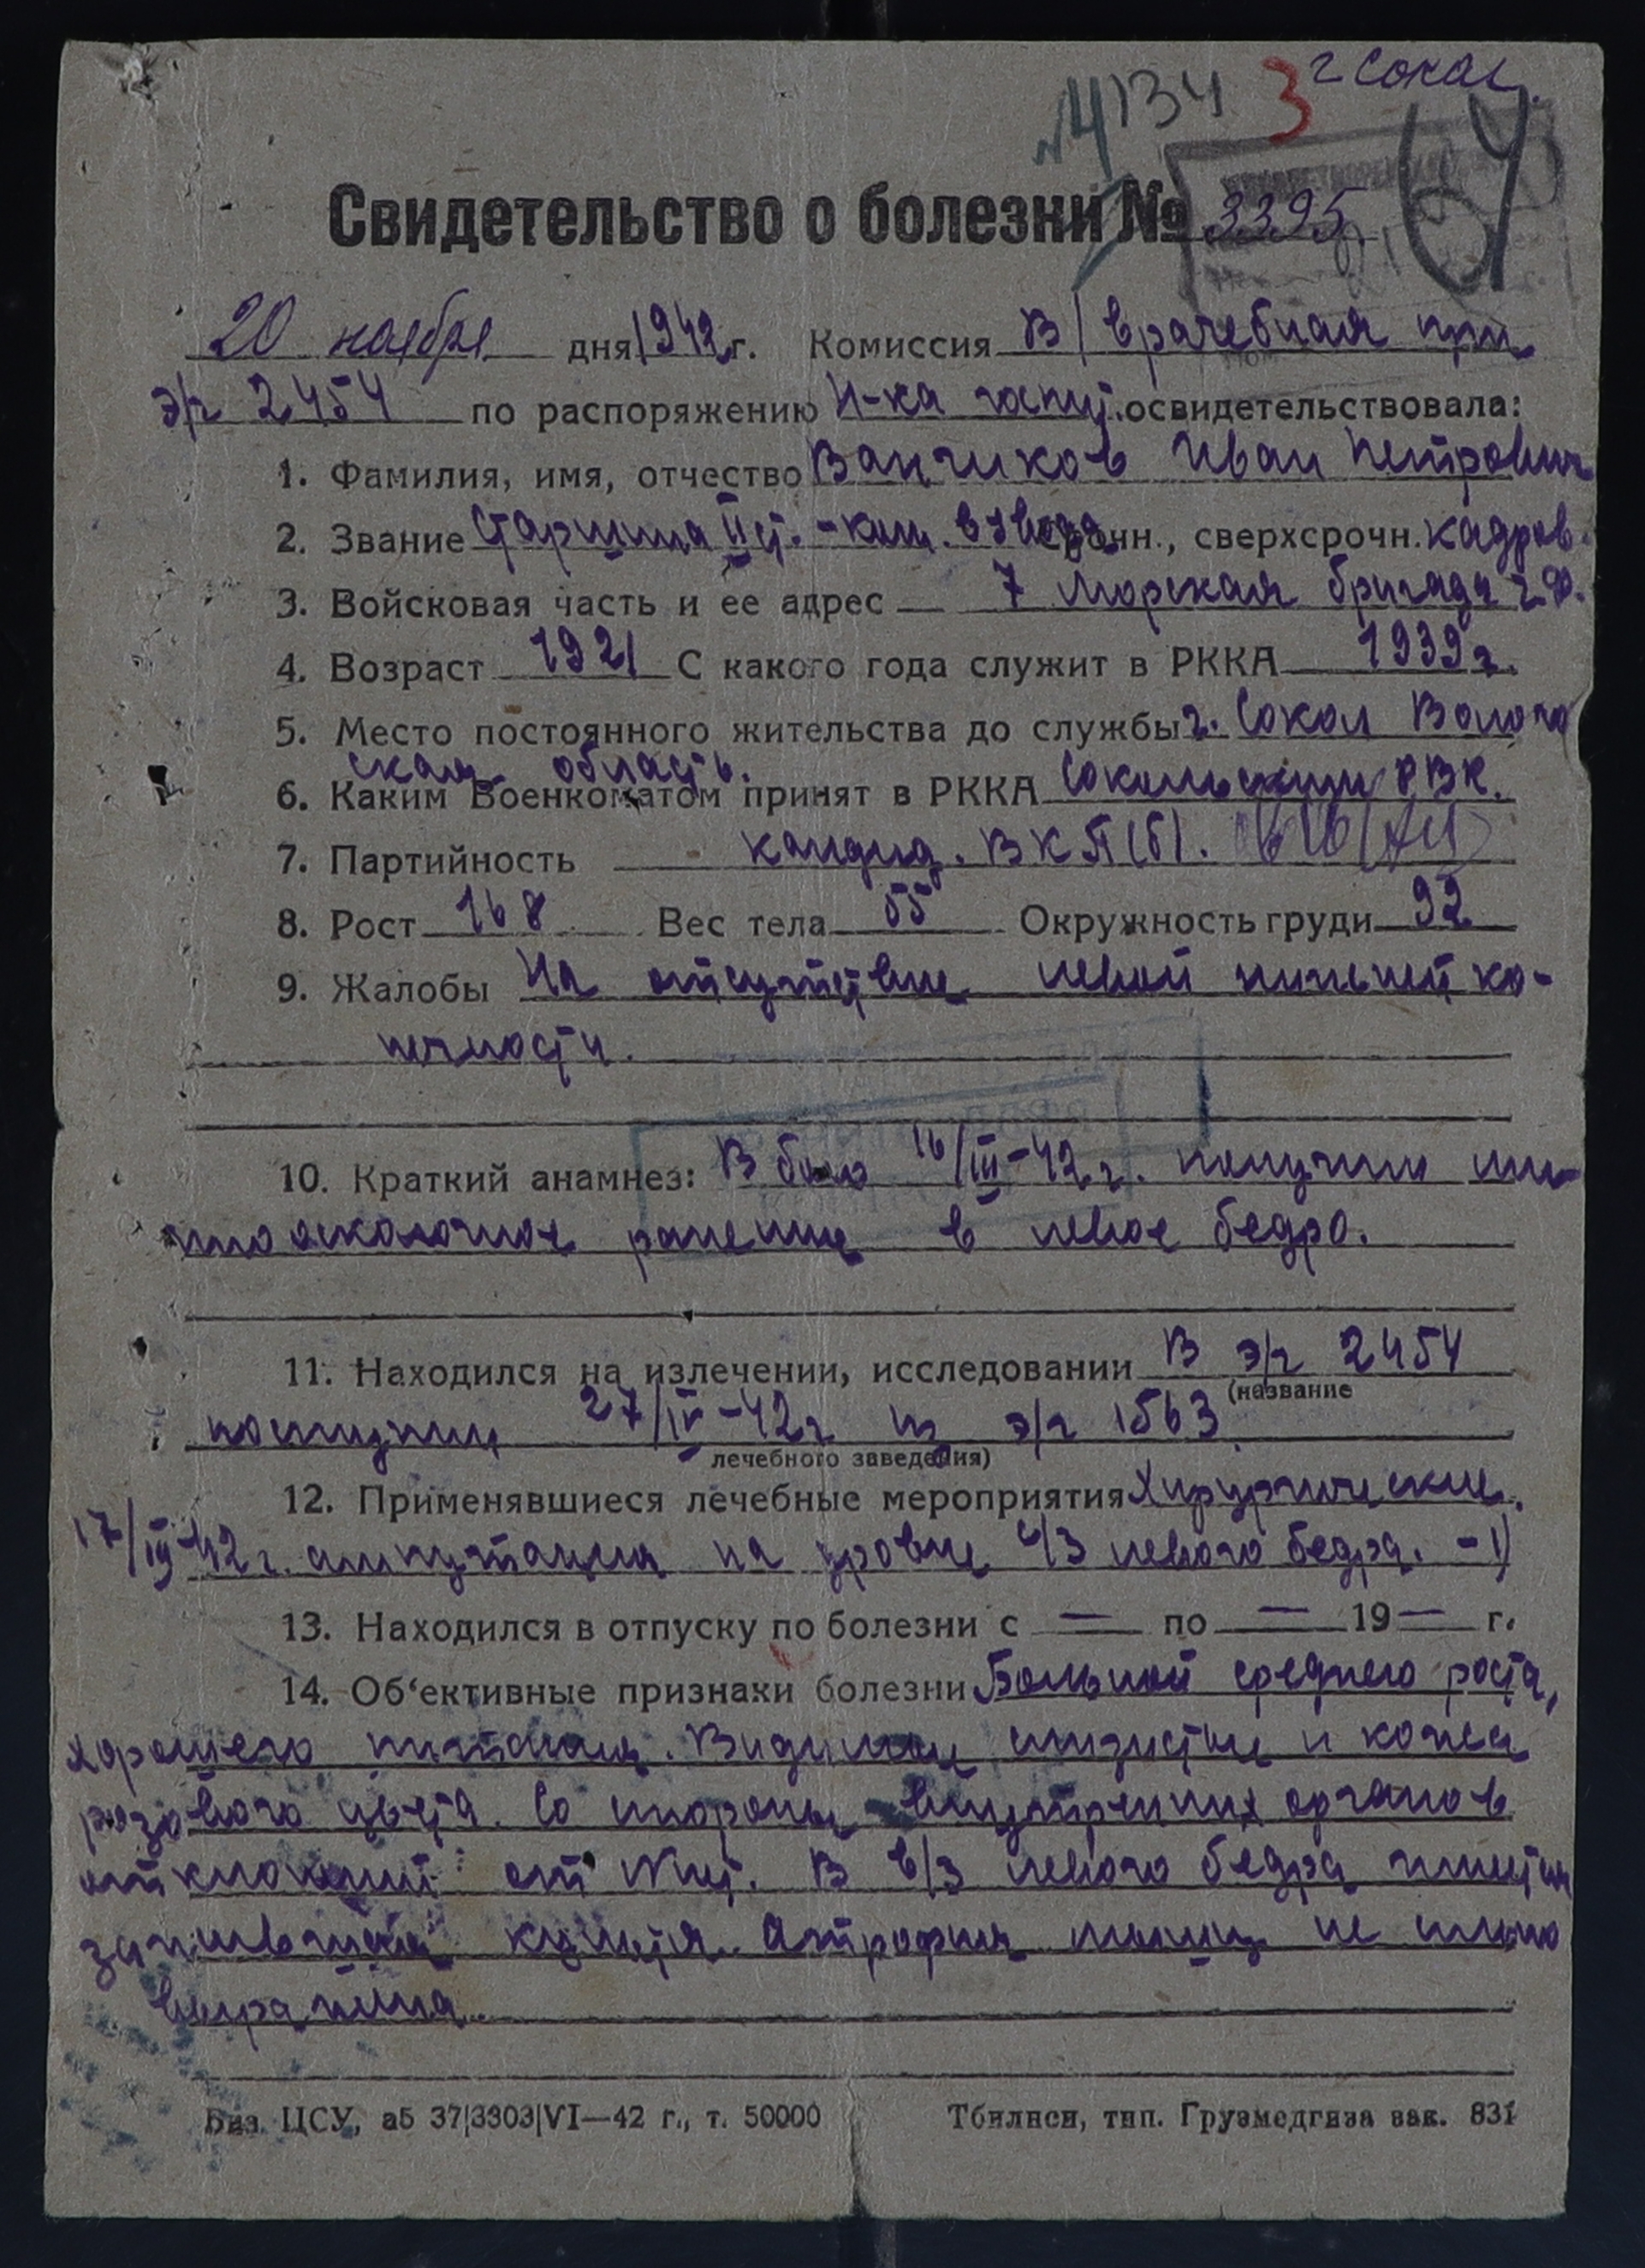 г Сокол.
4134 3
Свидетельство о болезни № 3395
20 ноября дня 1942 г. Комиссия В/врачебная при
э/г 2454 по распоряжению Н-ка госпит. освидетельствовала:
1. Фамилия, имя, отчество Ванчиков Иван Петрович
2. Звание Старшина II ст. - ком. взвода срочн., сверхсрочн. кадров.
3. Войсковая часть и ее адрес — 7 Морская бригада
4. Возраст 1921 С какого года служит в РККА 1939 г.
5. Место постоянного жительства до службы г. Сокол Волого
ская область.
6. Каким Военкоматом принят в РККА Сокольским РВК.
7. Партийность кандид. ВКП(б).
8. Рост 168 Вес тела 55 Окружность груди 92
9. Жалобы На отсутствие левой нижней ко-
нечности.
10. Краткий анамнез: В бою 16/III-42 г. получил
осколочное ранение в левое бедро.
11. Находился на излечении, исследовании В э/г 2454
(название
поступил 27/IV-42 г из э/г 1563
лечебного заведения)
12. Применявшиеся лечебные мероприятия Хирургические.
17/III-42 г. ампутация на уровне с/3 левого бедра. - 1)
13. Находился в отпуску по болезни с — по — 19 — г.
14. Об‘ективные признаки болезни Больной среднего роста,
хорошего питания. Видимые слизистые и кожа
розового цвета. Со стороны внутренних органов
отклонений от N нет. В в/3 левого бедра имеется
зажившая культя. Атрофия мышц не сильно
выражена.
Биз. ЦСУ, аб 37|3303|VI—42 г., т. 50000 Тбилиси, тип. Грузмедгиза зак. 831